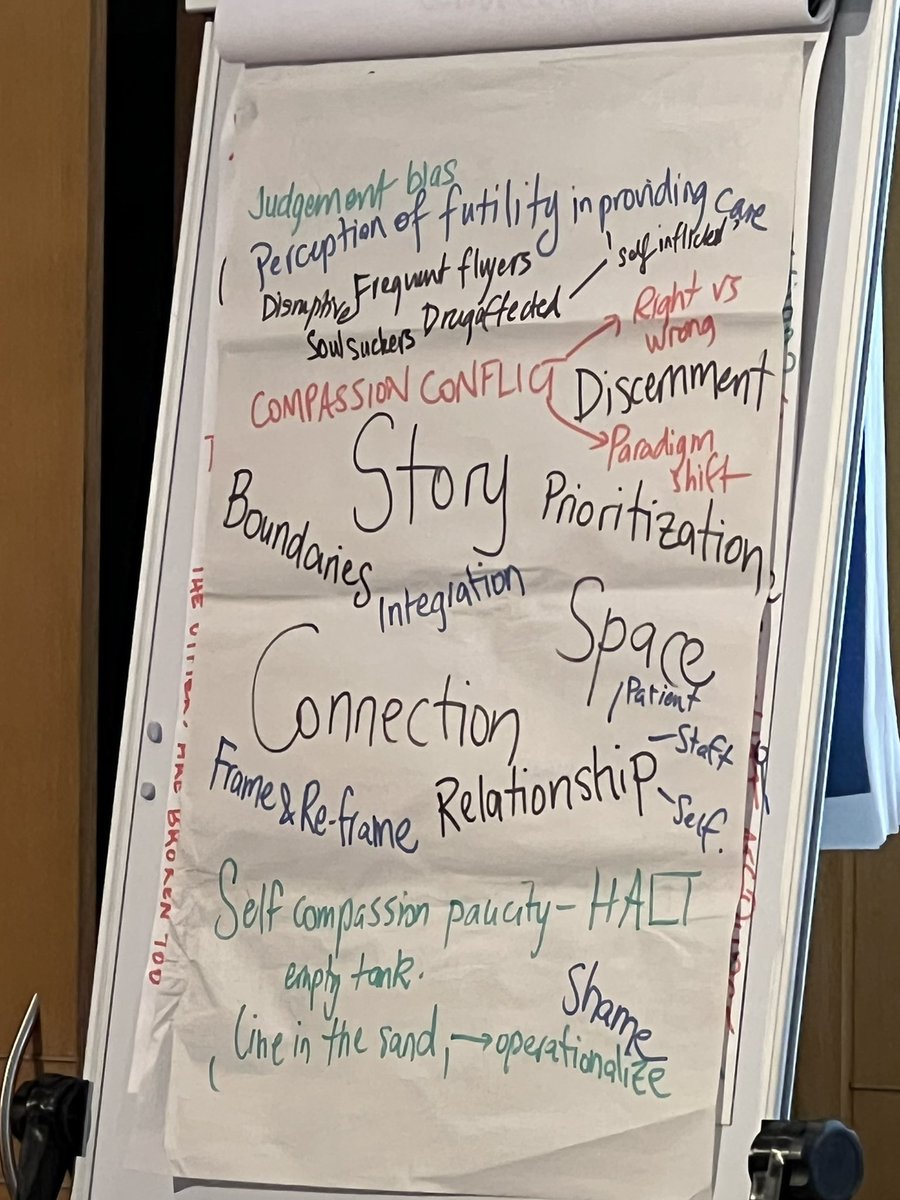 Judgement bias
Perception of futility in providing care
Disruptive Frequent flyers 'self inflicted'
Soul suckers Drug affected
Right vs
wrong
COMPASSION CONFLICT
Discernment
Paradigm
shift
Story
Boundaries
Prioritization
Integration
Space
Connection
Patient
Staff
Frame & Re-frame
Relationship
Self.
Self compassion paucity - HALT
empty tank.
Shame
'Line in the sand' → operationalize
BROKEN TOO